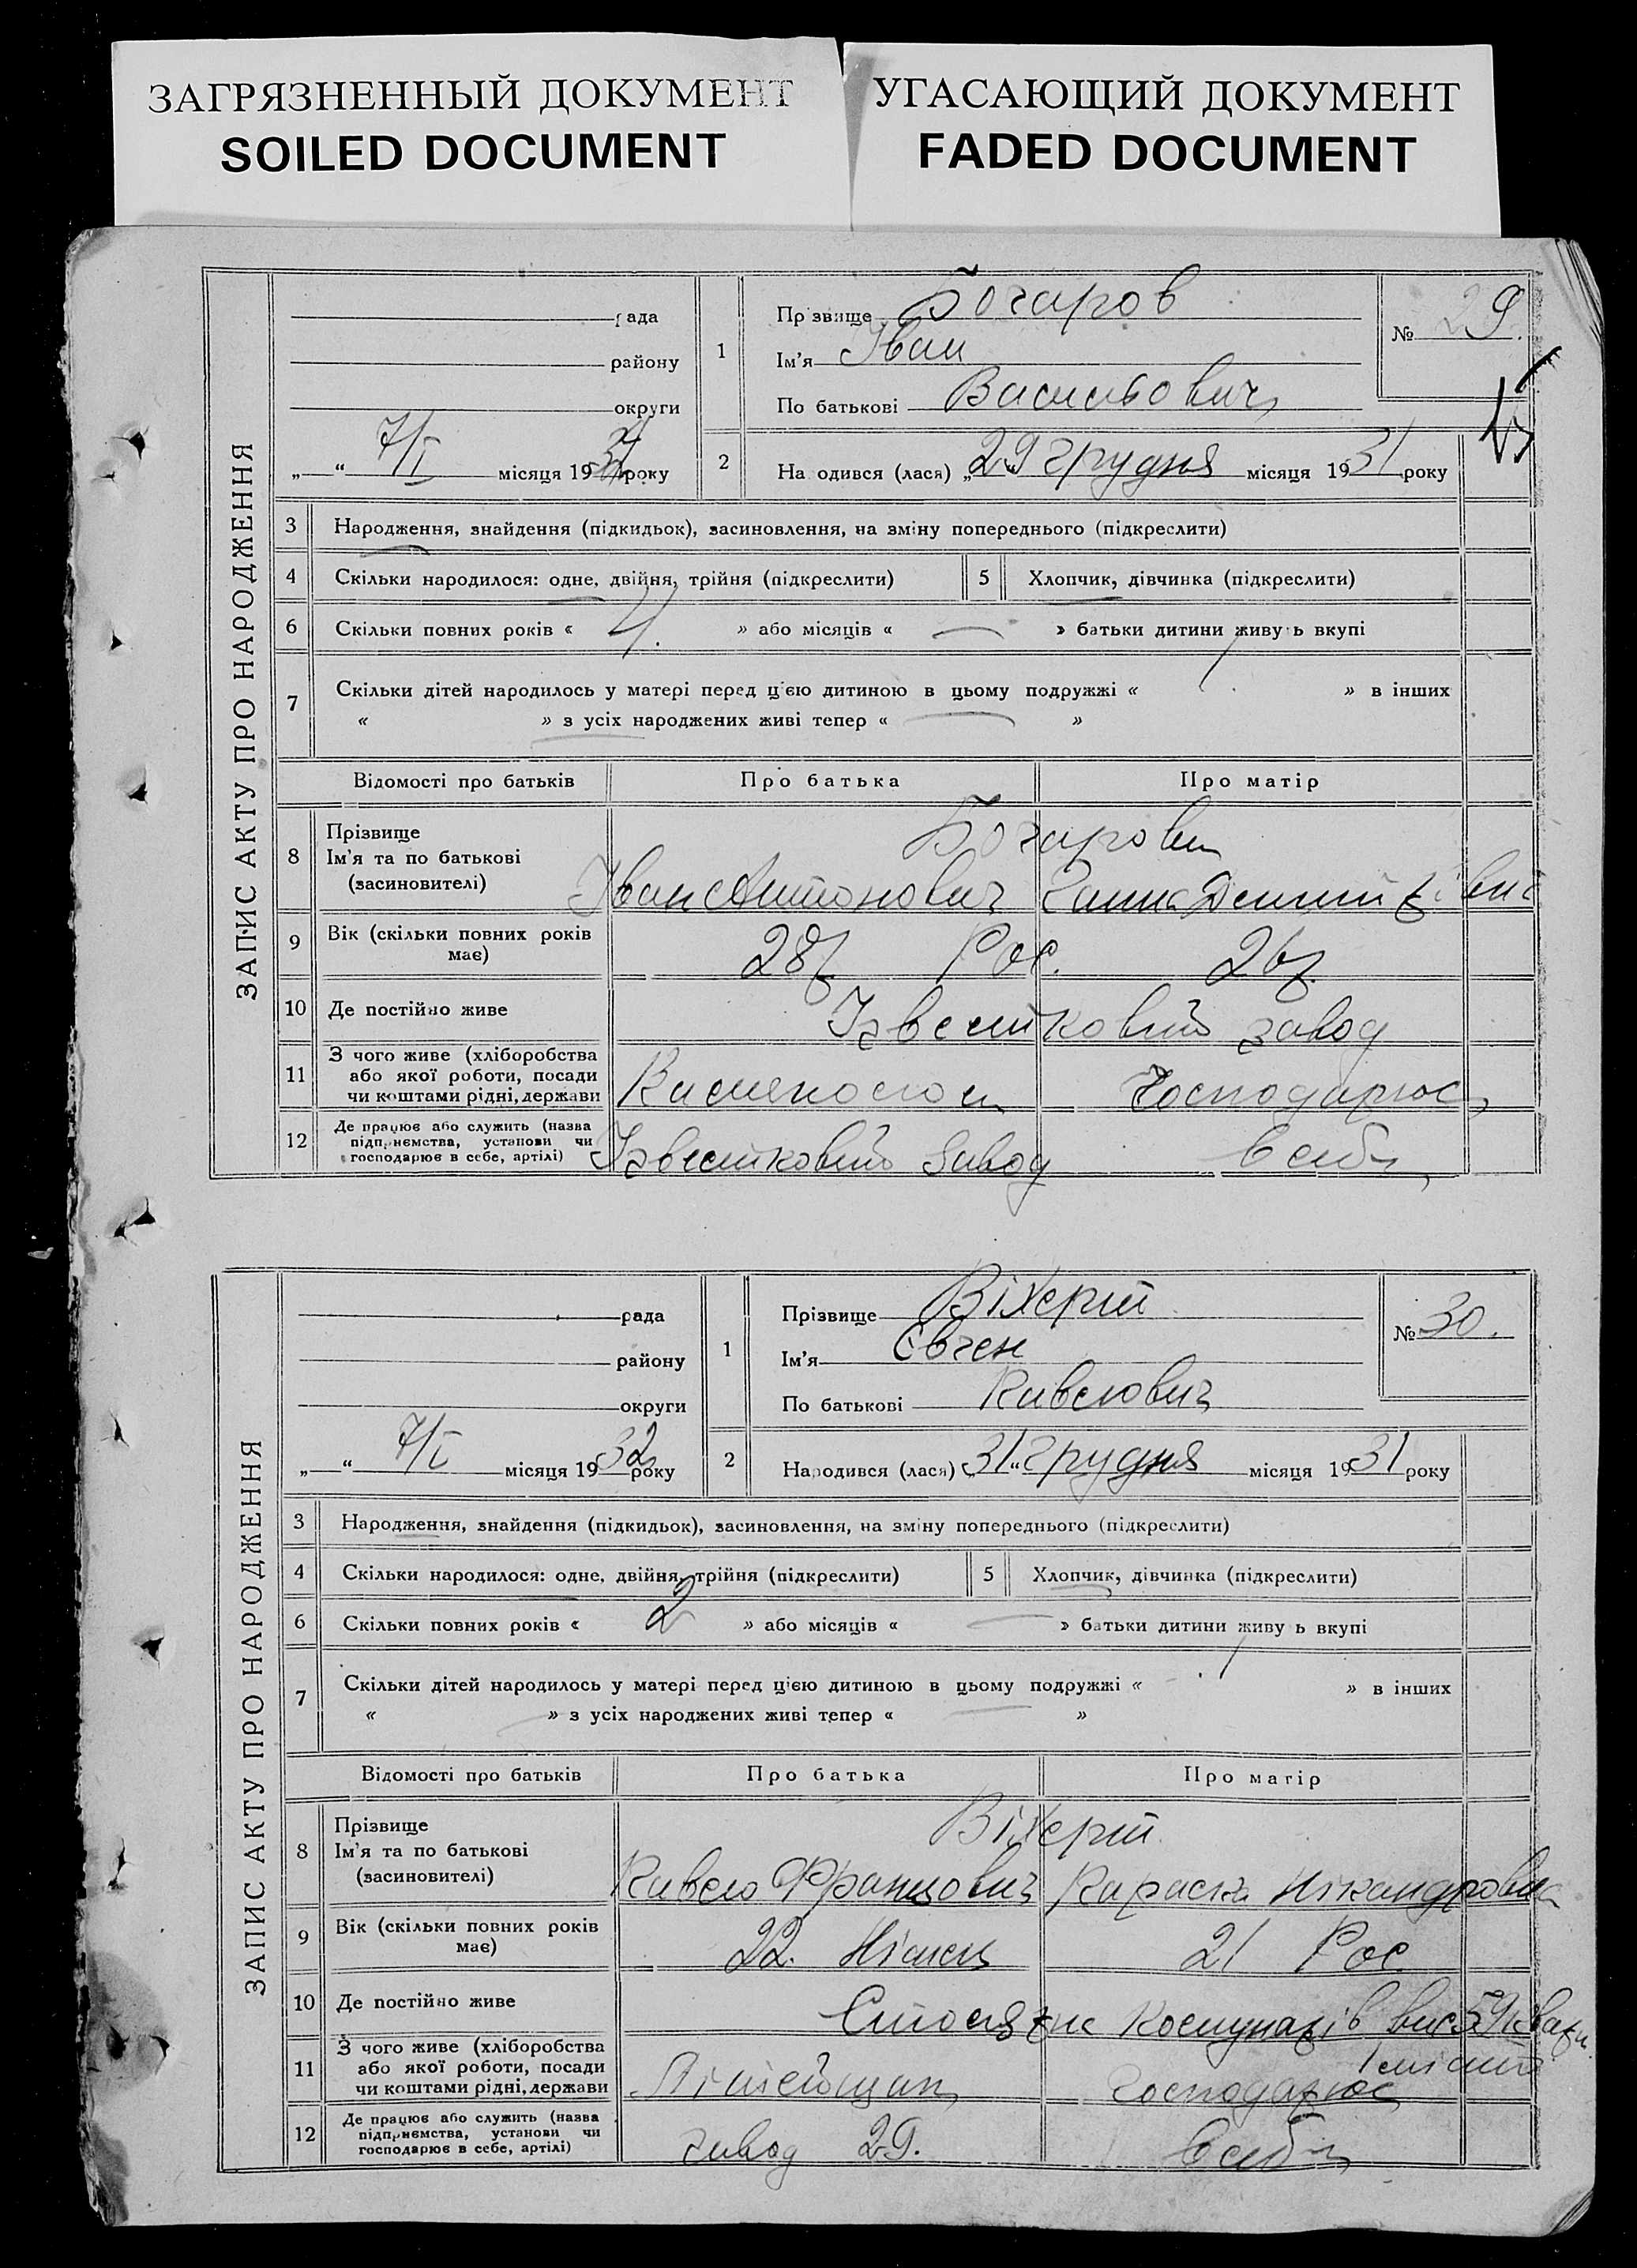 ЗАГРЯЗНЕННЫЙ ДОКУМЕНТ
SOILED DOCUMENT
УГАСАЮЩИЙ ДОКУМЕНТ
FADED DOCUMENT
ЗАПИС АКТУ ПРО НАРОДЖЕННЯ
рада
району
округи
„ “ 7/I місяця 19 року
1
Прізвище Бочаров
Ім'я Іван
По батькові Васильович
№ 29.
2
Народився (лася) „29 грудня місяця 1931 року
3 Народження, знайдення (підкидьок), засиновлення, на зміну попереднього (підкреслити)
4 Скільки народилося: одне, двійня, трійня (підкреслити)
5 Хлопчик, дівчинка (підкреслити)
6 Скільки повних років « 4. » або місяців « — » батьки дитини живуть вкупі
7 Скільки дітей народилось у матері перед цією дитиною в цьому подружжі « 1 » в інших
« » з усіх народжених живі тепер « — »
Відомості про батьків
Про батька
Про матір
8 Прізвище
Ім'я та по батькові
(засиновителі)
Бочарови
Іван Антонович Ганна
9 Вік (скільки повних років має)
28 Рос. 26
10 Де постійно живе
Ізвестковий завод
11 З чого живе (хліборобства або якої роботи, посади чи коштами рідні, держави
Господарює
12 Де працює або служить (назва підприємства, установи чи господарює в себе, артілі)
Ізвестковий завод в себе
ЗАПИС АКТУ ПРО НАРОДЖЕННЯ
рада
району
округи
„ “ 7/I місяця 1932 року
1
Прізвище Віхерт
Ім'я Євген
По батькові Павлович
№ 30.
2
Народився (лася) „31“ грудня місяця 1931 року
3 Народження, знайдення (підкидьок), засиновлення, на зміну попереднього (підкреслити)
4 Скільки народилося: одне, двійня, трійня (підкреслити)
5 Хлопчик, дівчинка (підкреслити)
6 Скільки повних років « 2 » або місяців « — » батьки дитини живу ь вкупі
7 Скільки дітей народилось у матері перед цією дитиною в цьому подружжі « 1 » в інших
« » з усіх народжених живі тепер « — »
Відомості про батьків
Про батька
Про матір
8 Прізвище
Ім'я та по батькові
(засиновителі)
Віхерт
Павло Францович Нікандровна
9 Вік (скільки повних років має)
22. Німец 21 Рос.
10 Де постійно живе
Комунарів
11 З чого живе (хліборобства або якої роботи, посади чи коштами рідні, держави
Господарює
12 Де працює або служить (назва підприємства, установи чи господарює в себе, артілі)
завод 29. в себе